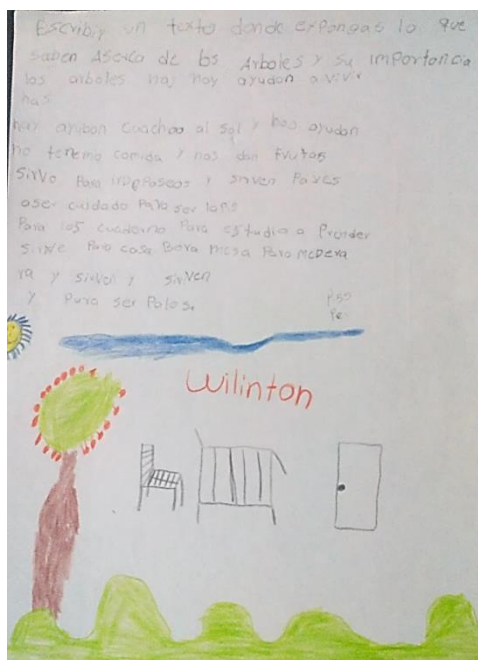 Escribir un texto donde expongas lo que
saben Aserca de los Arboles y su importancia
los arboles nos hoy ayudan a vivir
nas
hay arriban cuachoo al sol y hoo ayudan
no tenemo comida y nos dan frutos
Sirvo para paseos y sirven
aser cuidado para ser
Para los cuaderno Para estudia a Prender
sirve Para casa mesa Para Madera
ra y sirven y sirven
y Para ser Palos.
Wilinton